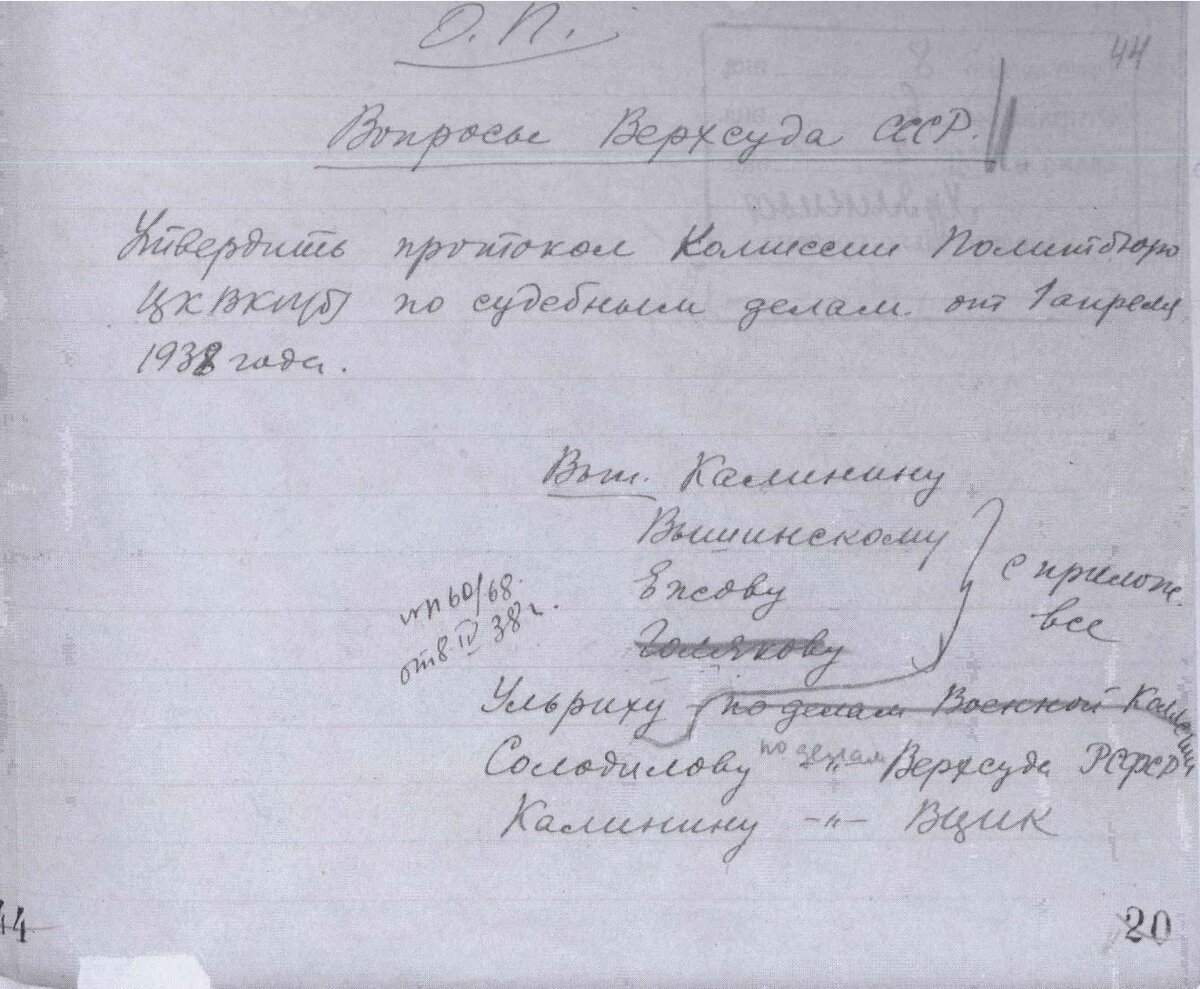 О.П.
44
Вопросы Верхсуда СССР.
Утвердить протокол Комиссии Политбюро
ЦК ВКП(б) по судебным делам от 1 апреля
1938 года.
Вып. Калинину
Вышинскому
Ежову
Голякову
с прилож.
все
60/68.
от 8.IV 38 г.
Ульриху по делам Военной Коллегии
Солодилову по делам -"- Верхсуда РСФСР
Калинину -"- ВЦИК
44
20